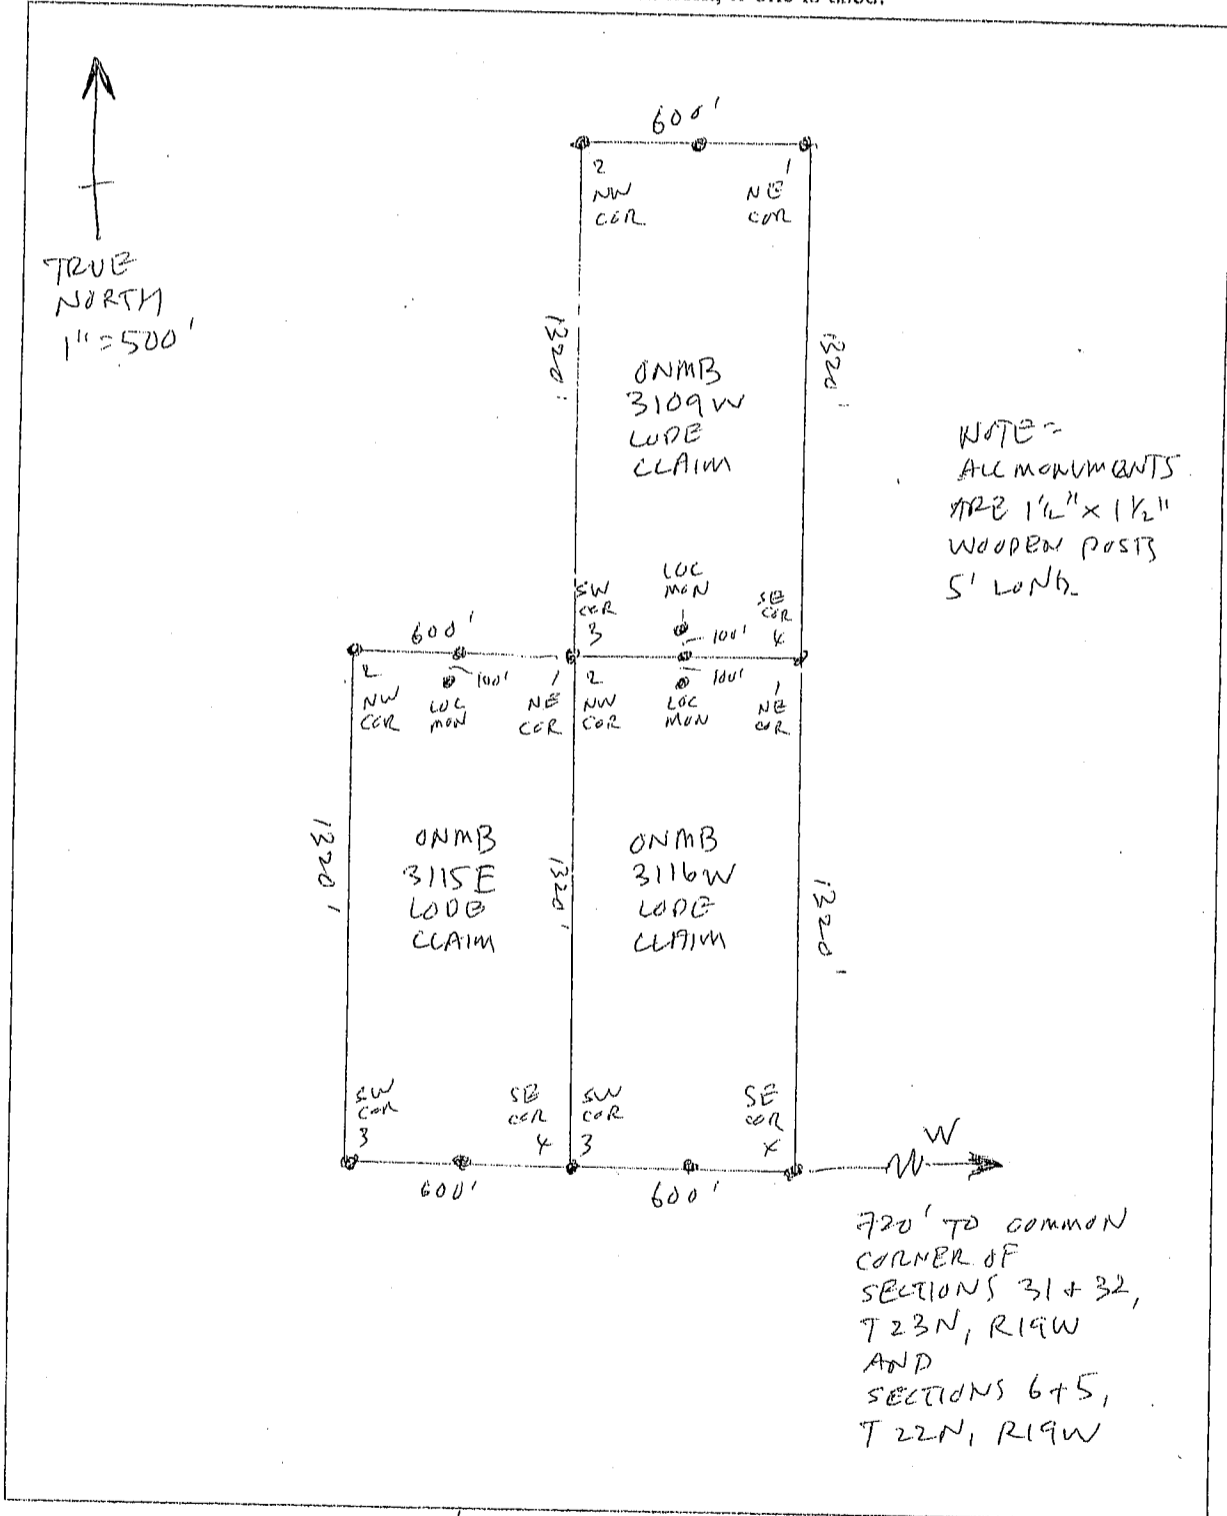 600'
2
NW
COR
1
NE
COR
TRUE
NORTH
1" = 500'
1320'
1320'
ONMB
3109W
LODE
CLAIM
NOTE =
ALL MONUMENTS
ARE 1½" × 1½"
WOODEN POSTS
5' LONG.
SW
COR
3
LOC
MON
100'
SE
COR
4
600'
2
NW
COR
100'
LOC
MON
1
NE
COR
2
NW
COR
100'
LOC
MON
1
NE
COR
1320'
ONMB
3115E
LODE
CLAIM
1320'
ONMB
3116W
LODE
CLAIM
1320'
SW
COR
3
SE
COR
4
SW
COR
3
SE
COR
4
W
600'
600'
720' TO COMMON
CORNER OF
SECTIONS 31 + 32,
T23N, R19W
AND
SECTIONS 6+5,
T22N, R19W